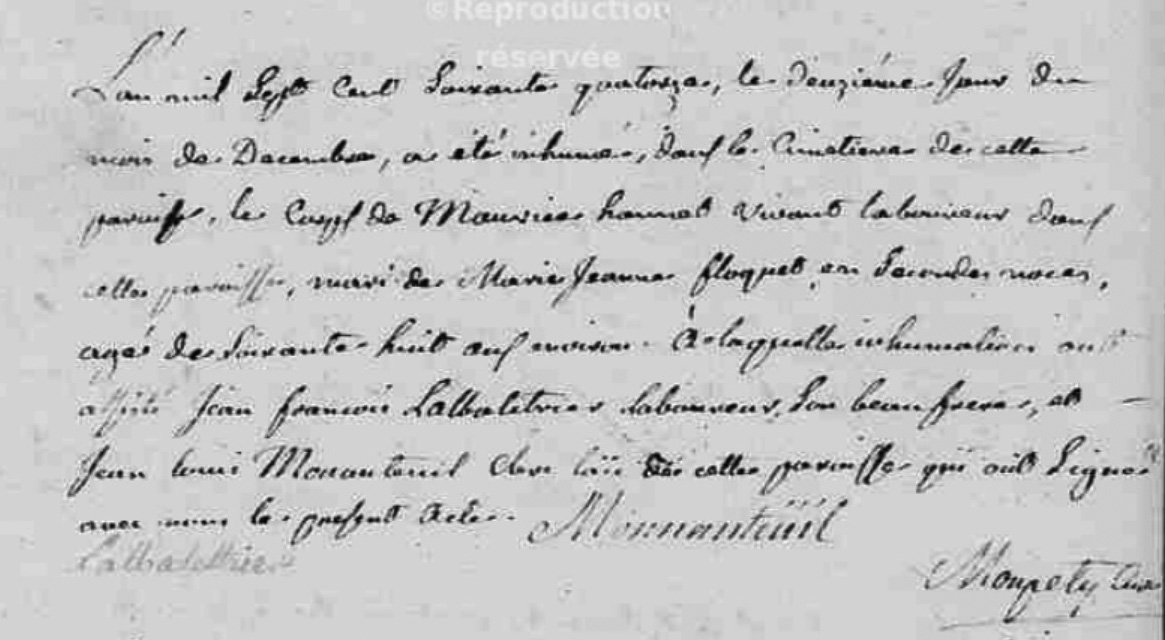 ©Reproduction
réservée
L'an mil Sept Cent Soixante quatorze, le deuzième Jour du
mois de Decembre, a été inhumé, dans le Cimetiere de cette
paroisse, le Corps de Maurice hannet vivant laboureur dans
cette paroisse, mari de Marie Jeanne floquet, en Secondes noces,
agé de Soixante huit ans environ. A laquelle inhumation ont
assisté Jean francois Lalbaletrier laboureur, Son beau frere, et
Jean louis Monanteuil Clerc laïc de cette paroisse qui ont Signé
avec nous le present Acte. Monnanteüil
Lalbalettrier
Monpety Curé